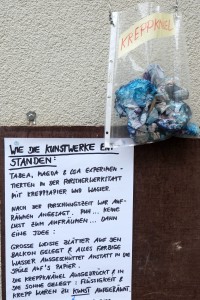 KREPPKNÄUEL
WIE DIE KUNSTWERKE ENT
STANDEN:
TABEA, MAGDA & LOA EXPERIMEN-
TIERTEN IN DER FORSCHERWERKSTATT
MIT KREPPPAPIER UND WASSER.
NACH DER FORSCHUNGSZEIT WAR AUF-
RÄUMEN ANGESAGT. PUH... KEINE
LUST ZUM AUFRÄUMEN... DANN
EINE IDEE:
GROSSE WEISSE BLÄTTER AUF DEN
BALKON GELEGT & ALLES FARBIGE
WASSER AUSGESCHÜTTET ANSTATT IN DIE
SPÜLE AUF'S PAPIER.
DIE KREPPKNÄUEL AUSGEDRÜCKT & IN
DIE SONNE GELEGT: FLÜSSIGKEIT &
KREPP WURDEN ZU KUNST